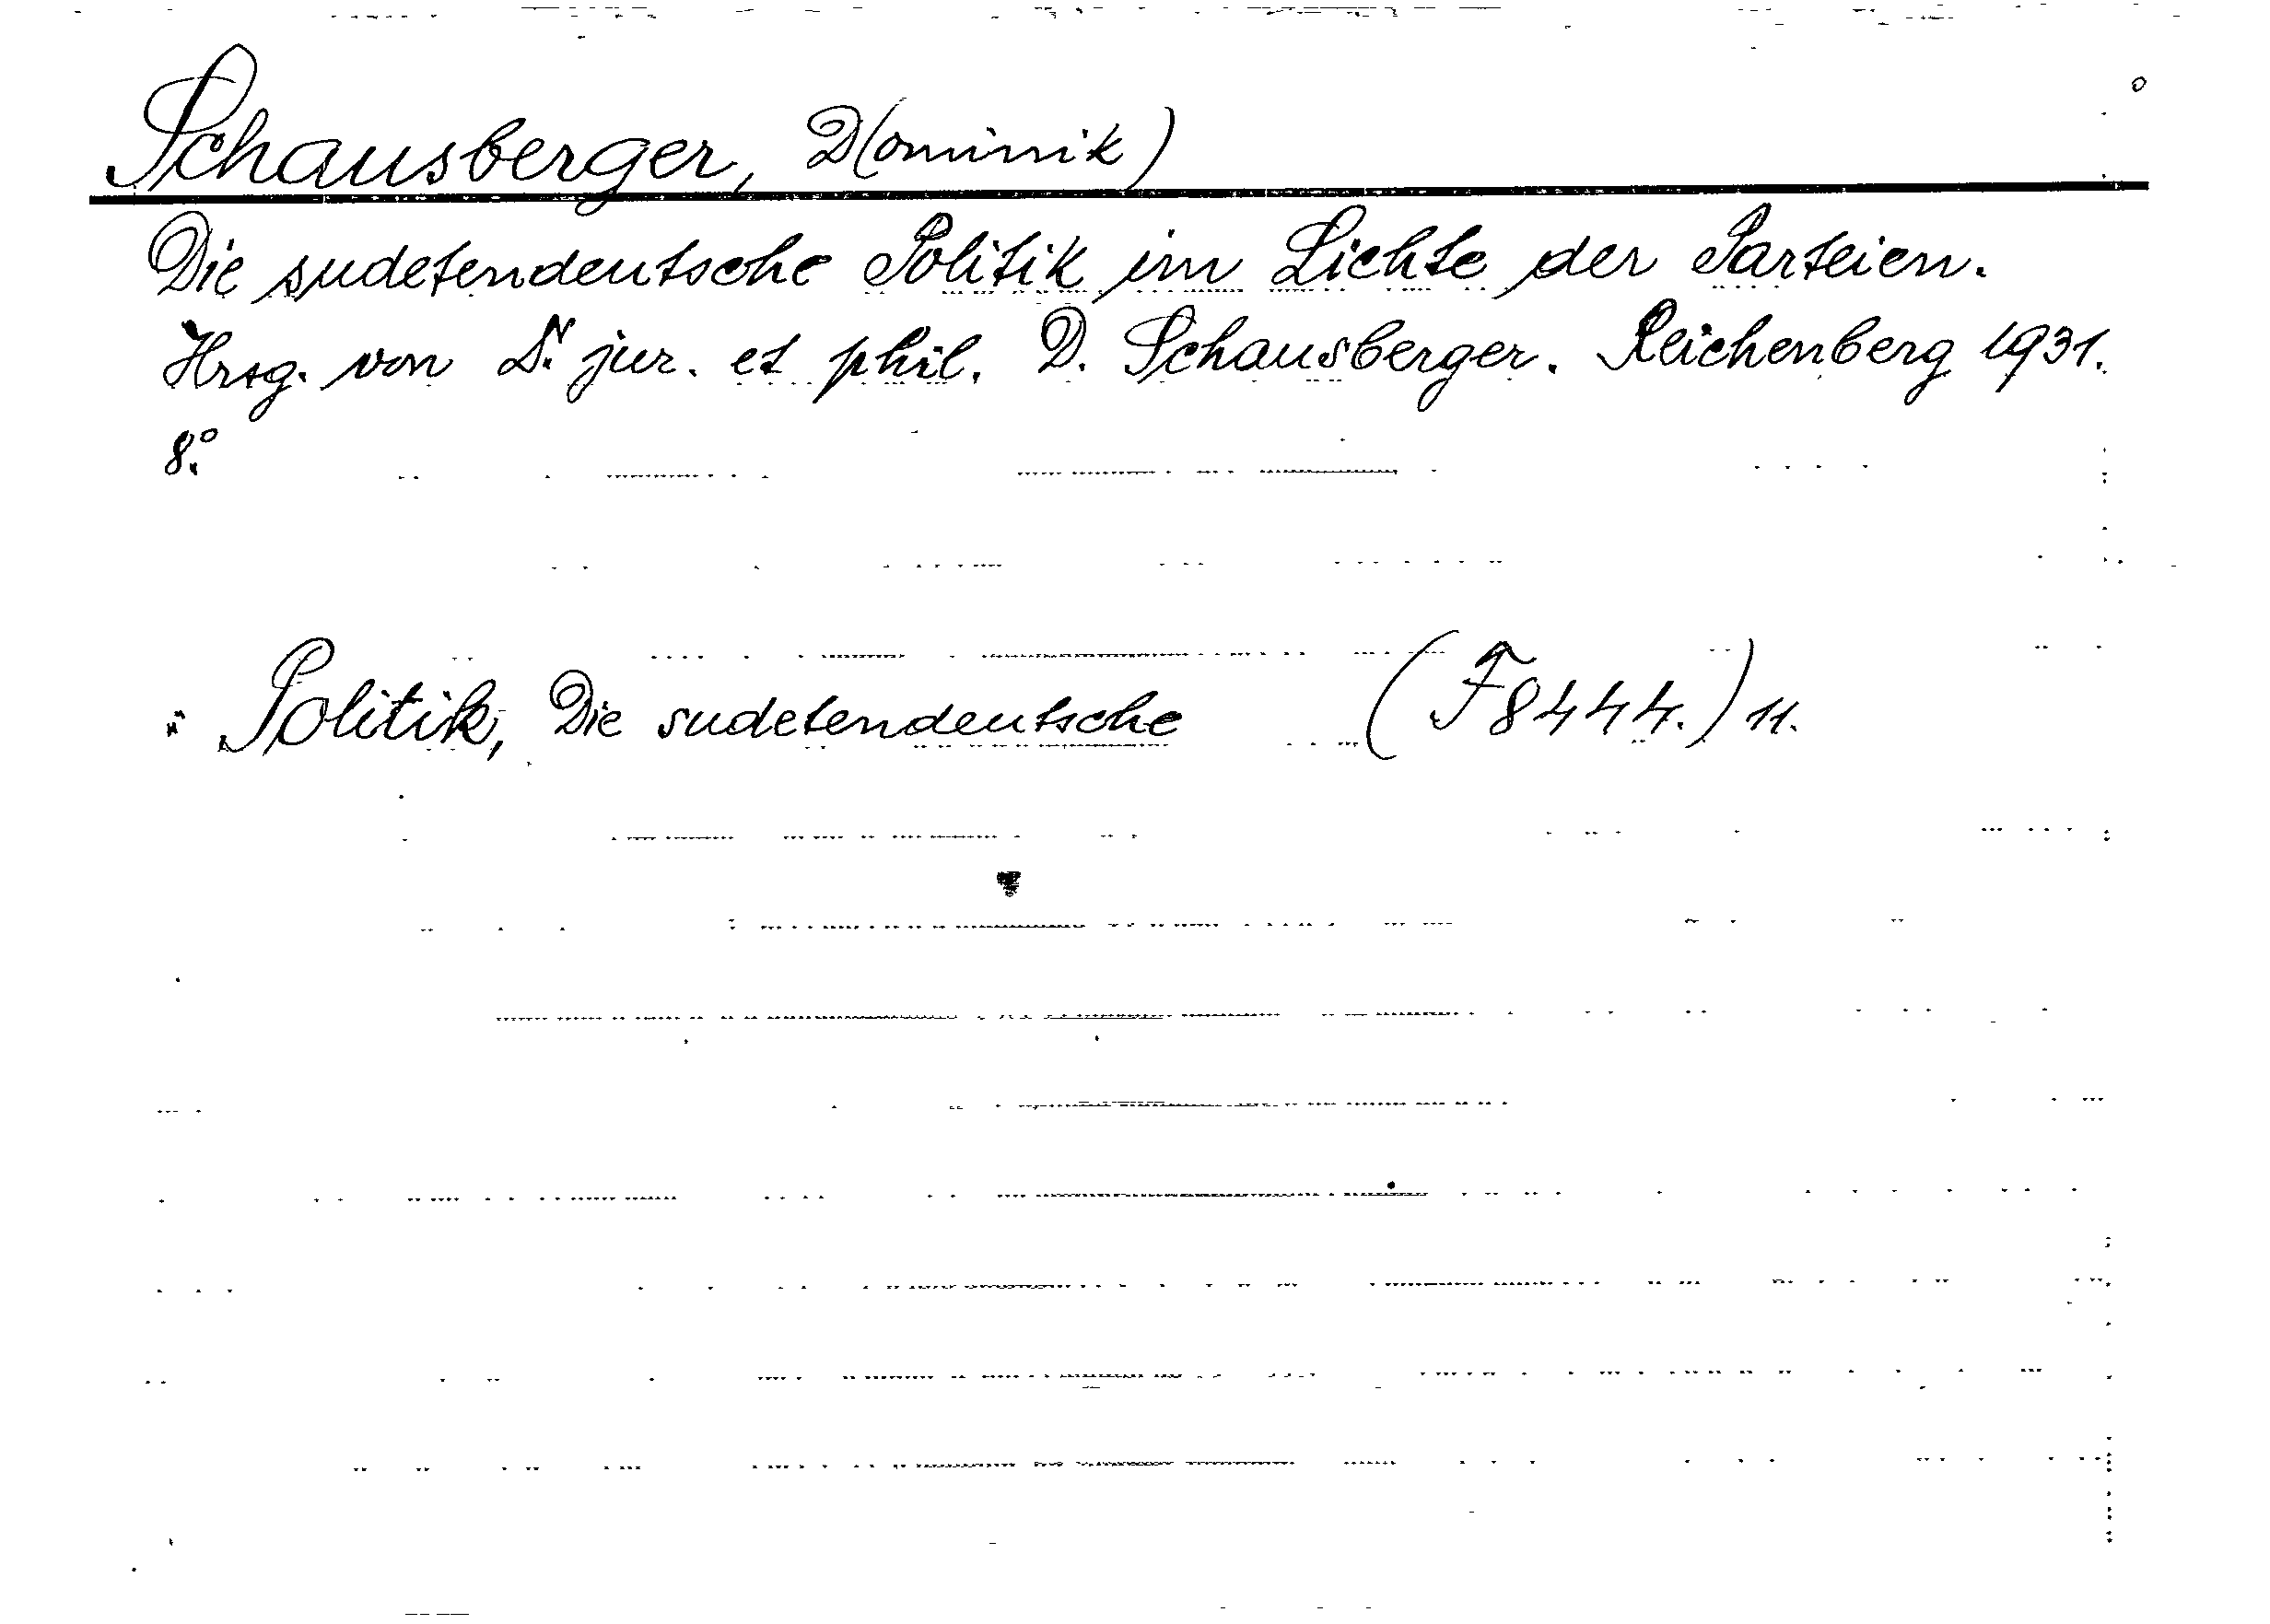 Schausberger, D(ominik)
Die sudetendeutsche Politik im Lichte der Parteien.
Hrsg. von Dr. jur. et phil. D. Schausberger. Reichenberg 1931.
8.°
Politik, Die sudetendeutsche (F 8444.) 11.